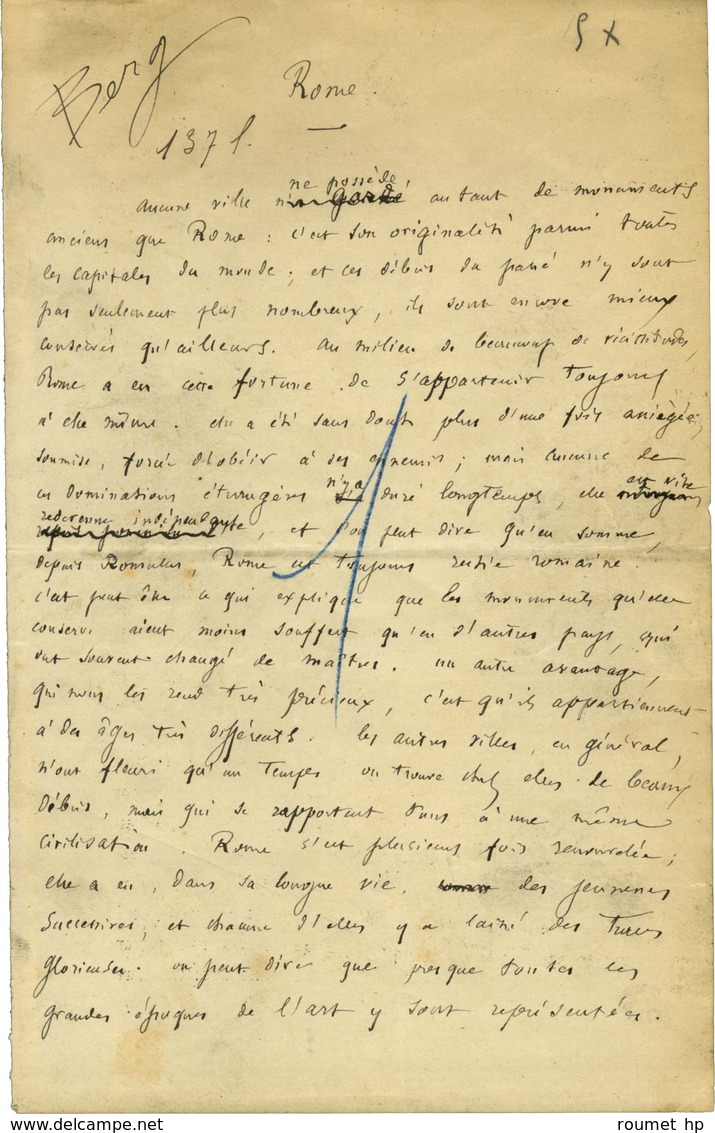 5 X
Berg
Rome.
137 l.
ne possède,
Aucune ville autant de monuments
anciens que Rome : c'est son originalité parmi toutes
les capitales du monde ; et ces débris du passé n'y sont
pas seulement plus nombreux, ils sont encore mieux
conservés qu'ailleurs. Au milieu de beaucoup de vicissitudes,
Rome a eu cette fortune de s'appartenir toujours
à elle même. elle a été sans doute plus d'une fois assiégée,
soumise, forcée d'obéir à ses ennemis ; mais aucune de
n'y a au vite
ces dominations étrangères duré longtemps, elle
redevenue indépendante, et l'on peut dire qu'en somme,
depuis Romulus, Rome est toujours restée romaine.
c'est peut être ce qui explique que les monuments qu'elle
conserve aient moins souffert qu'en d'autres pays, qui
ont souvent changé de maîtres. un autre avantage,
qui nous les rend très précieux, c'est qu'ils appartiennent
à des âges très différents. les autres villes, en général,
n'ont fleuri qu'un temps on trouve chez elles de beaux
débris, mais qui se rapportent tous à une même
civilisation. Rome s'est plusieurs fois renouvelée ;
elle a eu, dans sa longue vie, des jeunesses
successives, et chacune d'elles y a laissé des traces
glorieuses. on peut dire que presque toutes les
grandes époques de l'art y sont représentées.
roumet hp